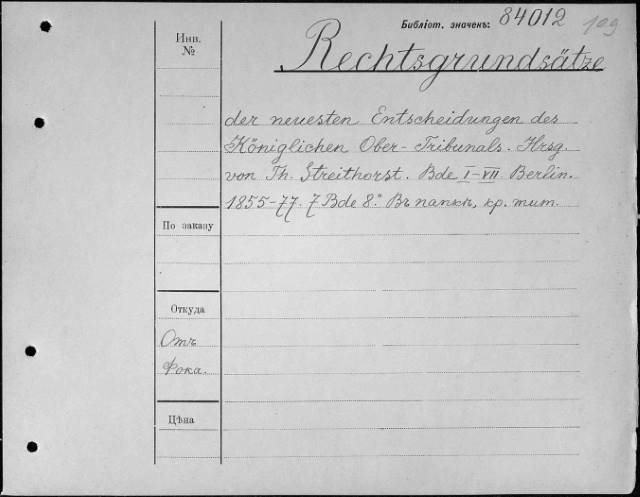 Библіот. значекъ: 84012 109
Инв. №
Rechtsgrundsätze
der neuesten Entscheidungen des
Königlichen Ober-Tribunals. Hrsg.
von Th. Streithorst. Bde I-VII Berlin.
1855-77. 7 Bde 8.° Въ папкѣ, кр. тит.
По заказу
Откуда
Отъ
Фока.
Цѣна